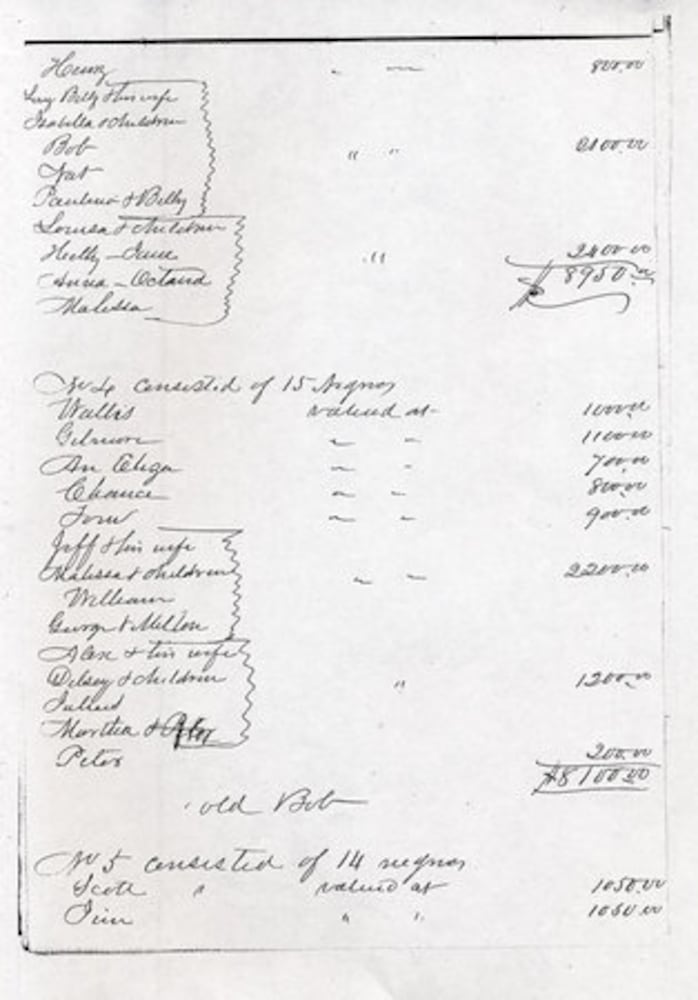 Henry " " 800.00
Billy & his wife
Isabella & children
Bob " " 00.00
Nat
Paulina & Billy
Louisa & children
Hetty — Jane " 2400.00
Anna — Octavid $ 8950.00
Malissa
No 4 consisted of 15 Negros
Wallis valued at 1000.00
Gilmore " " 1100.00
" " 700.00
Chance " " 800.00
Tom " " 900.00
Jeff & his wife
Malissa & children " " 2200.00
William
George & Milton
Alex & his wife
Delsey & children " 1200.00
Juliet
Martha &
Peter 200.00
$8100.00
old Bob
No 5 consisted of 14 negros
Scott " valued at 1050.00
Jim " " 1050.00